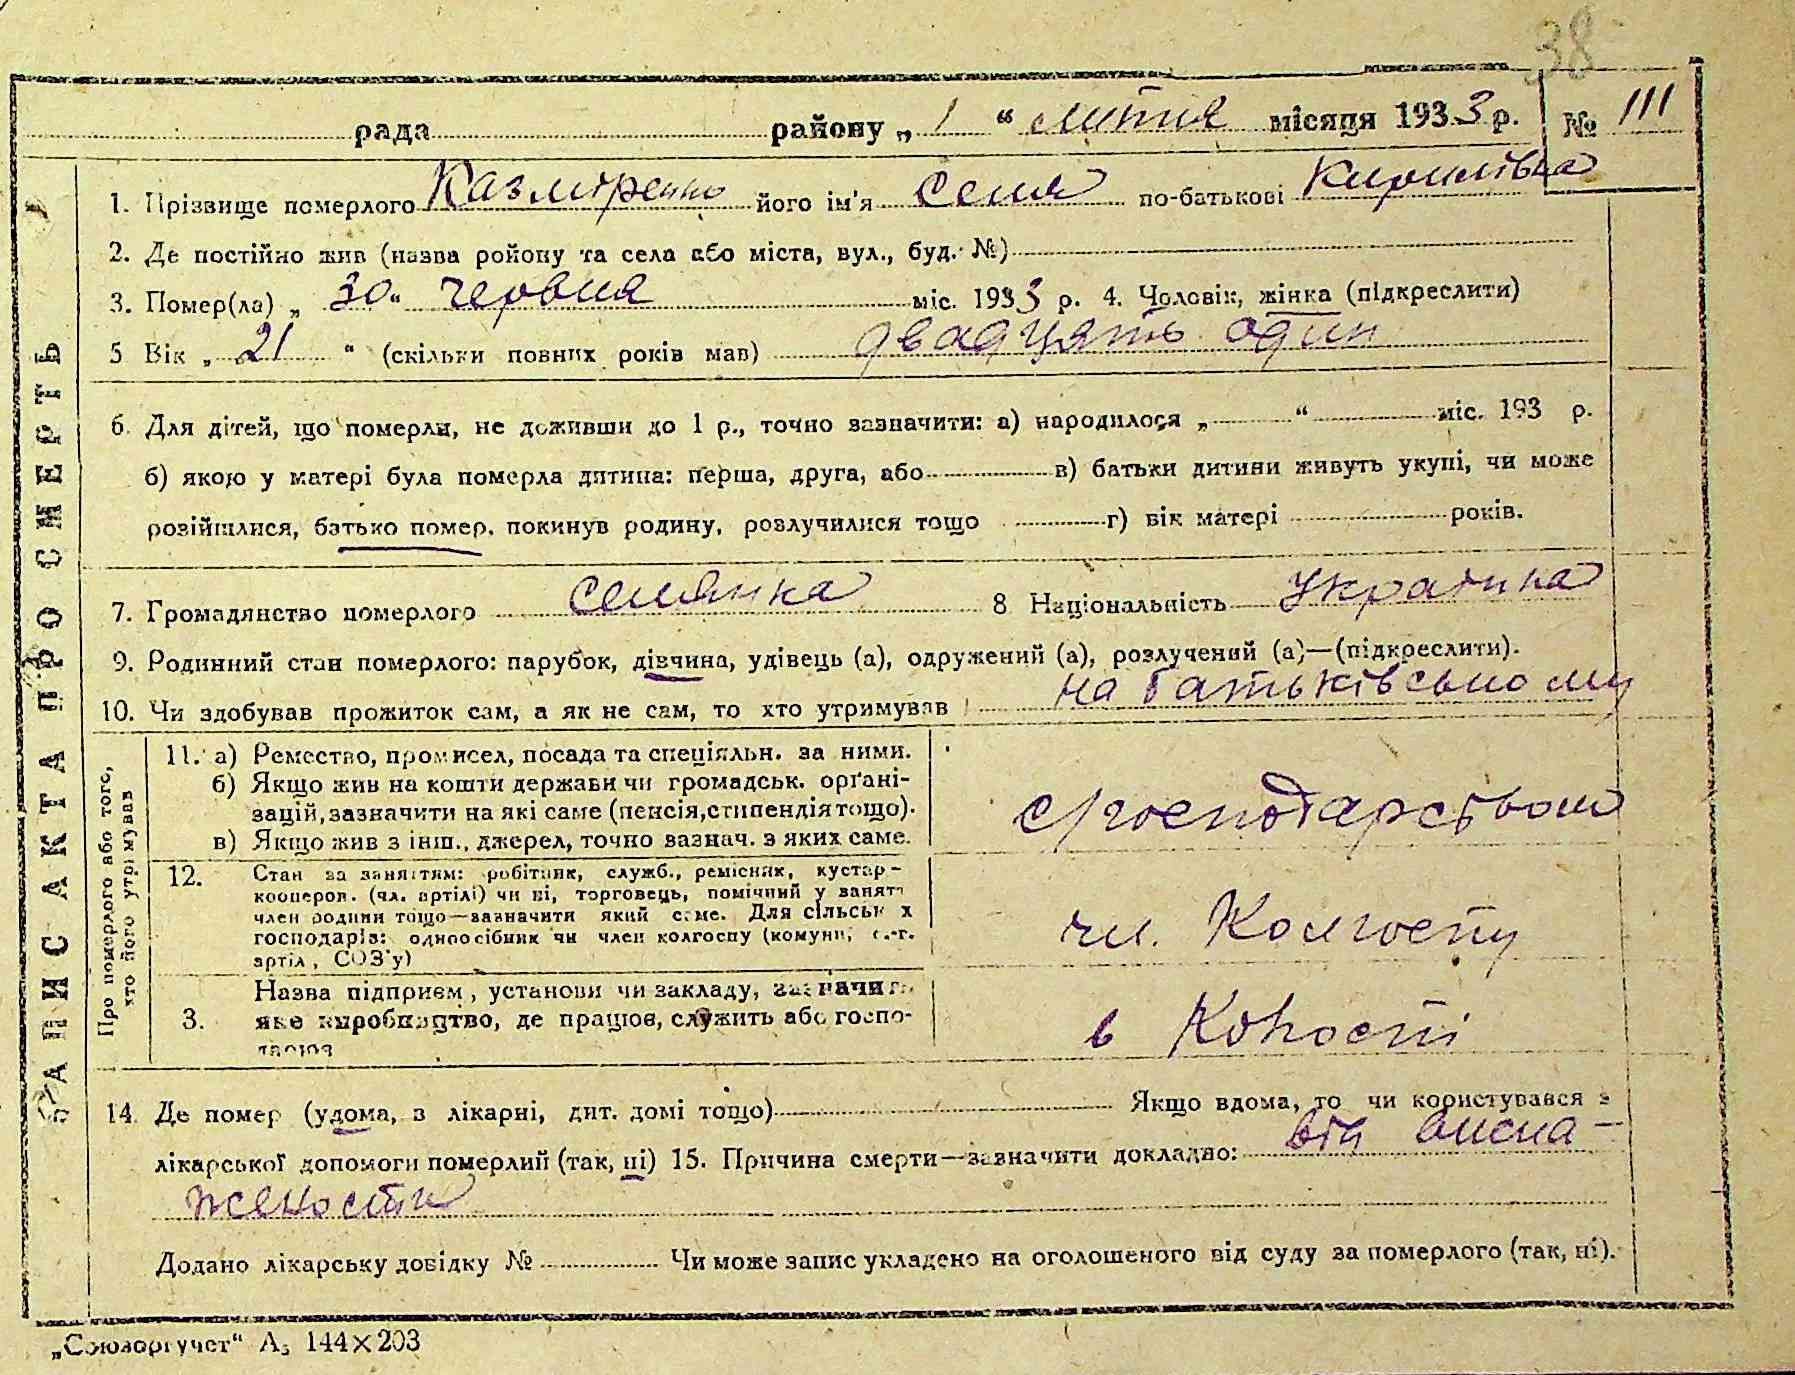 38
рада района „ 1 “ липня місяця 1933 р. № 111
1. Прізвище померлого Казміренко його ім'я Селя по-батькові Кирилівна
2. Де постійно жив (назва ройону та села або міста, вул., буд. №)
3. Помер(ла) „ 30 “ червня міс. 1933 р. 4. Чоловік, жінка (підкреслити)
5 Вік „ 21 “ (скільки повних років мав) двадцять один
6. Для дітей, що померли, не доживши до 1 р., точно зазначити: а) народилося „ “ міс. 193 р.
б) якою у матері була померла дитина: перша, друга, або в) батьки дитини живуть укупі, чи може
розійшлися, батько помер, покинув родину, розлучилися тощо г) вік матері років.
7. Громадянство померлого селянка 8 Національність Українка
9. Родинний стан померлого: парубок, дівчина, удівець (а), одружений (а), розлучений (а)—(підкреслити).
10. Чи здобував прожиток сам, а як не сам, то хто утримував на батьківському
ЗАПИС АКТА ПРО СМЕРТЬ
Про померлого або того,
хто його утримував
11. а) Ремество, промисел, посада та спеціяльн. за ними.
б) Якщо жив на кошти держави чи громадськ. орґані-
зацій, зазначити на які саме (пенсія, стипендія тощо).
в) Якщо жив з інш., джерел, точно зазнач. з яких саме.
с/господарством
12. Стан за заняттям: робітник, служб., ремісник, кустар-
кооперов. (чл. артілі) чи ні, торговець, помічний у занятт
член родини тощо—зазначити який саме. Для сільськ х
господарів: одноосібник чи член колгоспу (комуни, с.-г.
артіл, СОЗ'у)
чл. Колгоспу
3. Назва підприєм, установи чи закладу, зазначити
яке виробництво, де працює, служить або госпо-
дарює
в
14. Де помер (удома, в лікарні, дит. домі тощо) Якщо вдома, то чи користувався з
лікарської допомоги померлий (так, ні) 15. Причина смерти—зазначити докладно: від висна-
жености
Додано лікарську довідку № Чи може запис укладено на оголошеного від суду за померлого (так, ні).
„Союзоргучет“ А₅ 144×203